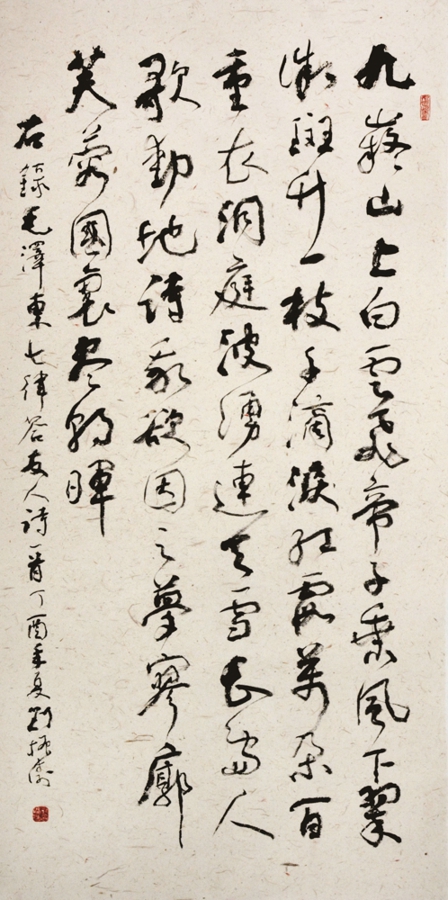 九嶷山上白雲飛帝子乘風下翠
微斑竹一枝千滴淚紅霞萬朵百
重衣洞庭波湧連天雪長島人
歌動地詩我欲因之夢寥廓
芙蓉國裏尽朝暉
右錄毛澤東七律答友人詩一首丁酉年夏